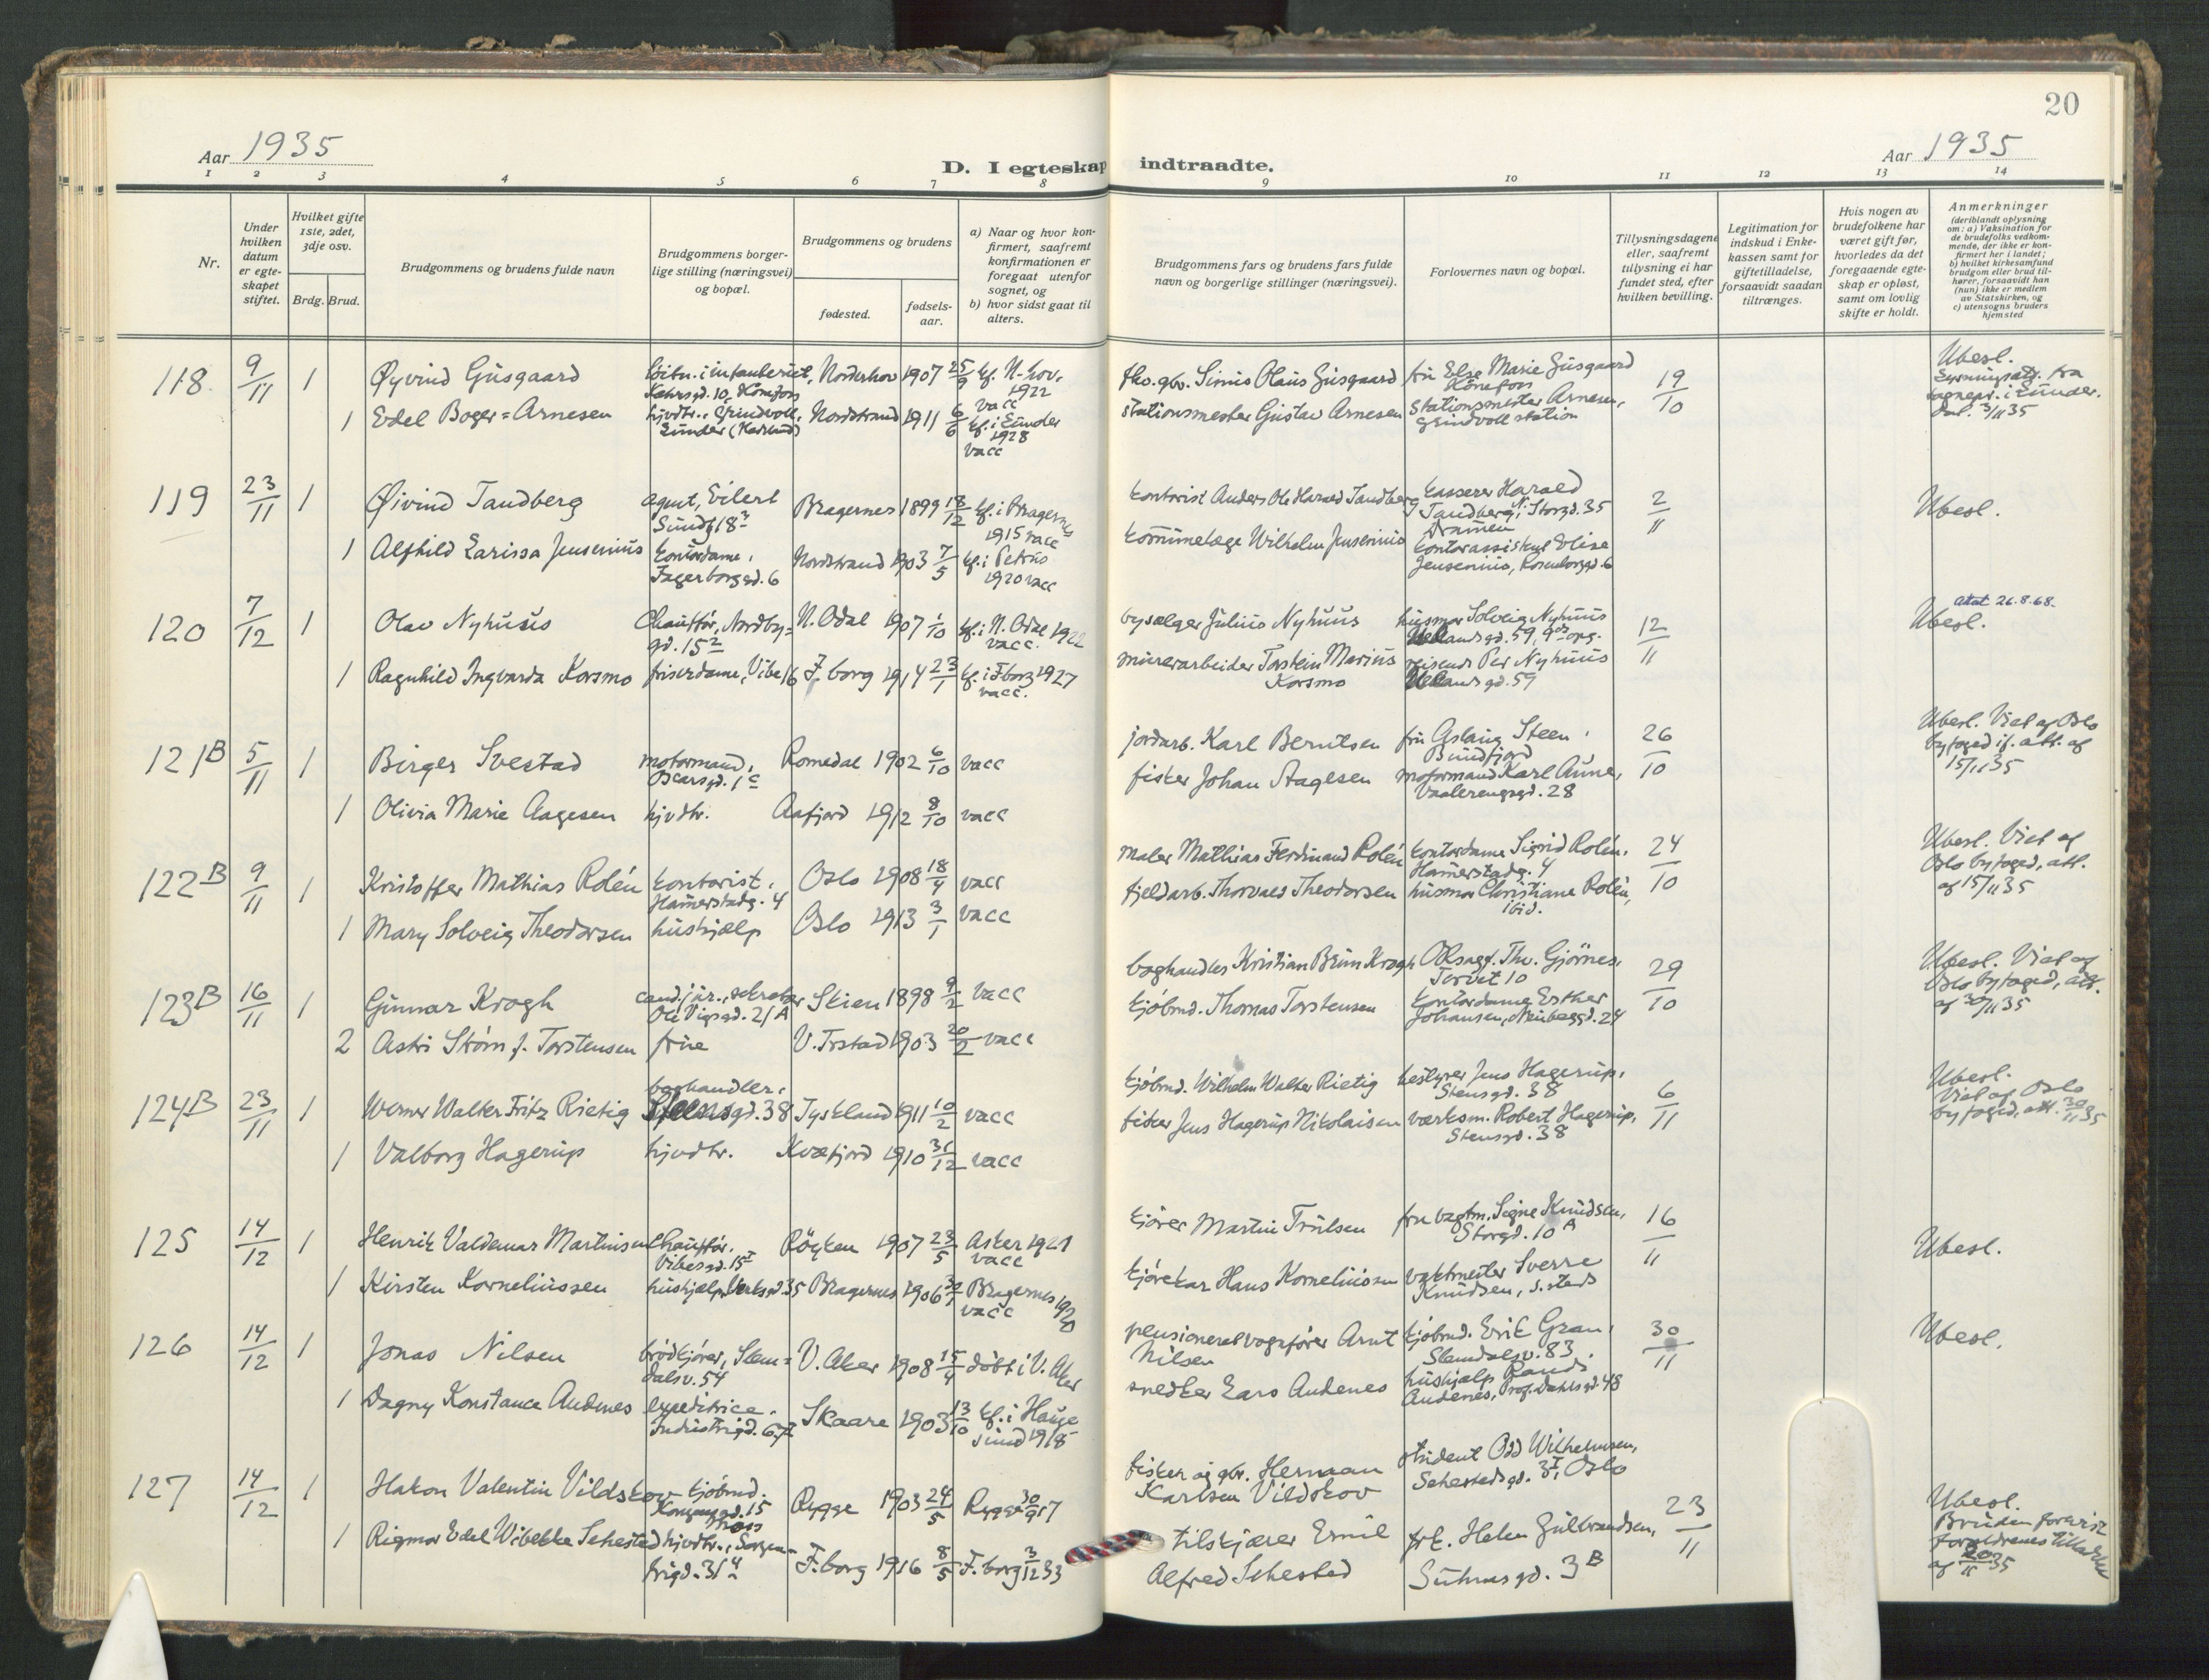 20
Aar 1935
D. I egteskap indtraadte.
Aar 1935
1 2 3 4 5 6 7 8 9 10 11 12 13 14
Nr.
Under hvilken datum er egteskapet stiftet.
Hvilket gifte 1ste, 2det, 3dje osv.
Brdg. Brud.
Brudgommens og brudens fulde navn
Brudgommens borgerlige stilling (næringsvei) og bopæl.
Brudgommens og brudens
fødested.
fødselsaar.
a) Naar og hvor konfirmert, saafremt konfirmationen er foregaat utenfor sognet, og
b) hvor sidst gaat til alters.
Brudgommens fars og brudens fars fulde navn og borgerlige stillinger (næringsvei).
Forlovernes navn og bopæl.
Tillysningsdagene eller, saafremt tillysning ei har fundet sted, efter hvilken bevilling.
Legitimation for indskud i Enkekassen samt for giftetilladelse, forsaavidt saadan tiltrænges.
Hvis nogen av brudefolkene har været gift før, hvorledes da det foregaaende egteskap er opløst, samt om lovlig skifte er holdt.
Anmerkninger
(deriblandt oplysning om: a) Vaksination for de brudefolks vedkommende, der ikke er konfirmert her i landet; b) hvilket kirkesamfund brudgom eller brud tilhører, forsaavidt han (hun) ikke er medlem av Statskirken, og c) utensogns bruders hjemsted
118. 9/11 1 Øyvind Gusgaard Norderhov 1907 25/9 kf. N.hov. 1922 vacc
fhv. gbr. Simus Olaus Gusgaard fru Else Marie Gusgaard Hönefoss 19/10 Ubesl.
1 Edel Boger=Arnesen hjvdtr., Grindvoll, Lunder Nordstrand 1911 6/6 kf. i Lunder 1928 vacc
stationsmester Gustav Arnesen stationsmester Arnesen, Grindvoll station
119 23/11 1 Øivind Tandberg agent, Eilert Sundtg 18³ Bragernes 1899 18/12 kf. i Bragernes 1915 vacc
kontorist Anders Ole Harald Tandberg kasserer Harald Tandberg, N. Storgd. 35 Dramen 2/11 Ubesl.
1 Alfhild Larissa Jensenius kontordame, Fagerborggd. 6 Nordstrand 1903 7/5 kf. i Petrus 1920 vacc
kommunelæge Wilhelm Jensenius kontorassistent Elise Jensenius, Rosenborggd. 6
120 7/12 1 Olav Nyhuus Chauffør, Nordbygd. 15² N. Odal 1907 1/10 kf. i N. Odal 1922 vacc.
bysælger Julius Nyhuus husmor Solveig Nyhuus Uelandsgd. 59, 12/11 Ubesl. attest 26.8.68.
1 Ragnhild Ingvarda Korsmo friserdame, Vibe 16 F.borg 1914 23/1 kf. i F.borg 1927 vacc.
murerarbeider Torstein Marius Korsmo reisende Per Nyhuus Uelandsgd. 59
121B 5/11 1 Birger Svestad motormand, Oscarsgd. 1c Romedal 1902 6/10 vacc
jordarb. Karl Berntsen fru Aslaug Steen, Bundfjord 26/10 Ubesl. Viet af Oslo byfoged if. att. af 15/11 35
1 Olivia Marie Aagesen hjvdtr. Aafjord 1912 8/10 vacc
fisker Johan Aagesen motormand Karl Aune, Vaalerengsgd. 28
122B 9/11 1 Kristoffer Mathias Rolén kontorist, Hamerstadg. 4 Oslo 1908 18/4 vacc
maler Mathias Ferdinand Rolén kontordame Sigrid Rolén, Hamerstadg. 4 24/10 Ubesl. Viet af Oslo byfoged, att. af 15/11 35
1 Mary Solveig Theodorsen hushjælp Oslo 1913 3/1 vacc
fjeldarb. Thorvald Theodorsen husmor Christiane Rolén, ibid.
123B 16/11 1 Gunnar Krogh cand. jur., sekretær Ole Vigsgd. 21A Skien 1898 9/2 vacc
boghandler Kristian Brun Krogh ORsagf. Thv. Gjörnes, Torvet 10 29/10 Ubesl. Viet af Oslo byfoged, att. af 30/11 35
2 Astri Störn f. Torstensen frue V. Trstad 1903 20/2 vacc
kjöbmd. Thomas Torstensen kontordame Esther Johansen, Neuberggd. 24
124B 23/11 1 Werner Walter Fritz Rietig boghandler, Stensgd. 38 Tyskland 1911 10/2 vacc
kjöbmd. Wilhelm Walter Rietig bestyrer Jens Hagerup, Stensgd. 38 6/11 Ubesl. Viet af Oslo byfoged, att. 30/11 35
1 Valborg Hagerup hjvdtr. Kvæfjord 1910 31/12 vacc
fisker Jens Hagerup Nikolaisen værksm. Robert Hagerup, Stensgd. 38
125 14/12 1 Henrik Valdemar Martinsen Chauffør, Vibesgd. 15 Röyken 1907 23/5 Asker 1921 vacc
kjörer Martin Trulsen fru vagtm. Signe Knudsen, Storgd. 10A 16/11 Ubesl.
1 Kirsten Korneliussen hushjælp, Verksgd. 35 Bragernes 1906 Bragernes vacc
kjörekar Hans Korneliussen vaktmester Sverre Knudsen, s. steds
126 14/12 1 Jonas Nilsen brödkjörer, Slemdalsv. 54 V. Aker 1908 15/4 döbt i V. Aker
pensioneret vognförer Arnt Nilsen kjöbmd. Erik Gran, Slemdalsv. 83 30/11 Ubesl.
1 Dagny Konstance Andenes expeditrice, Industrigd. Skaare 1903 13/10 kf. i Haugesund 1918
snedker Lars Andenes hushjælp Randi Andenes, Prof. Dahlsgd. 48
127 14/12 1 Hakon Valentin Vildskov kjöbmd. Kongensgd. 15 Moss Rygge 1903 24/5 Rygge 30/9 17
fisker og gbr. Herman Karlsen Vildskov student Odd Wilhelmsen, Sehestedsgd. 3, Oslo 23/11 Ubesl. Bruden forevist forældrenes tilladelse af 20/11 35
1 Rigmor Edel Wibekke Sehested hjvdtr., Sorgenfrigd. 31 F.borg 1916 8/5 F.borg 3/12 33
tilskjærer Emil Alfred Sehested frk. Helen Gulbrandsen, Suhmsgd. 3B